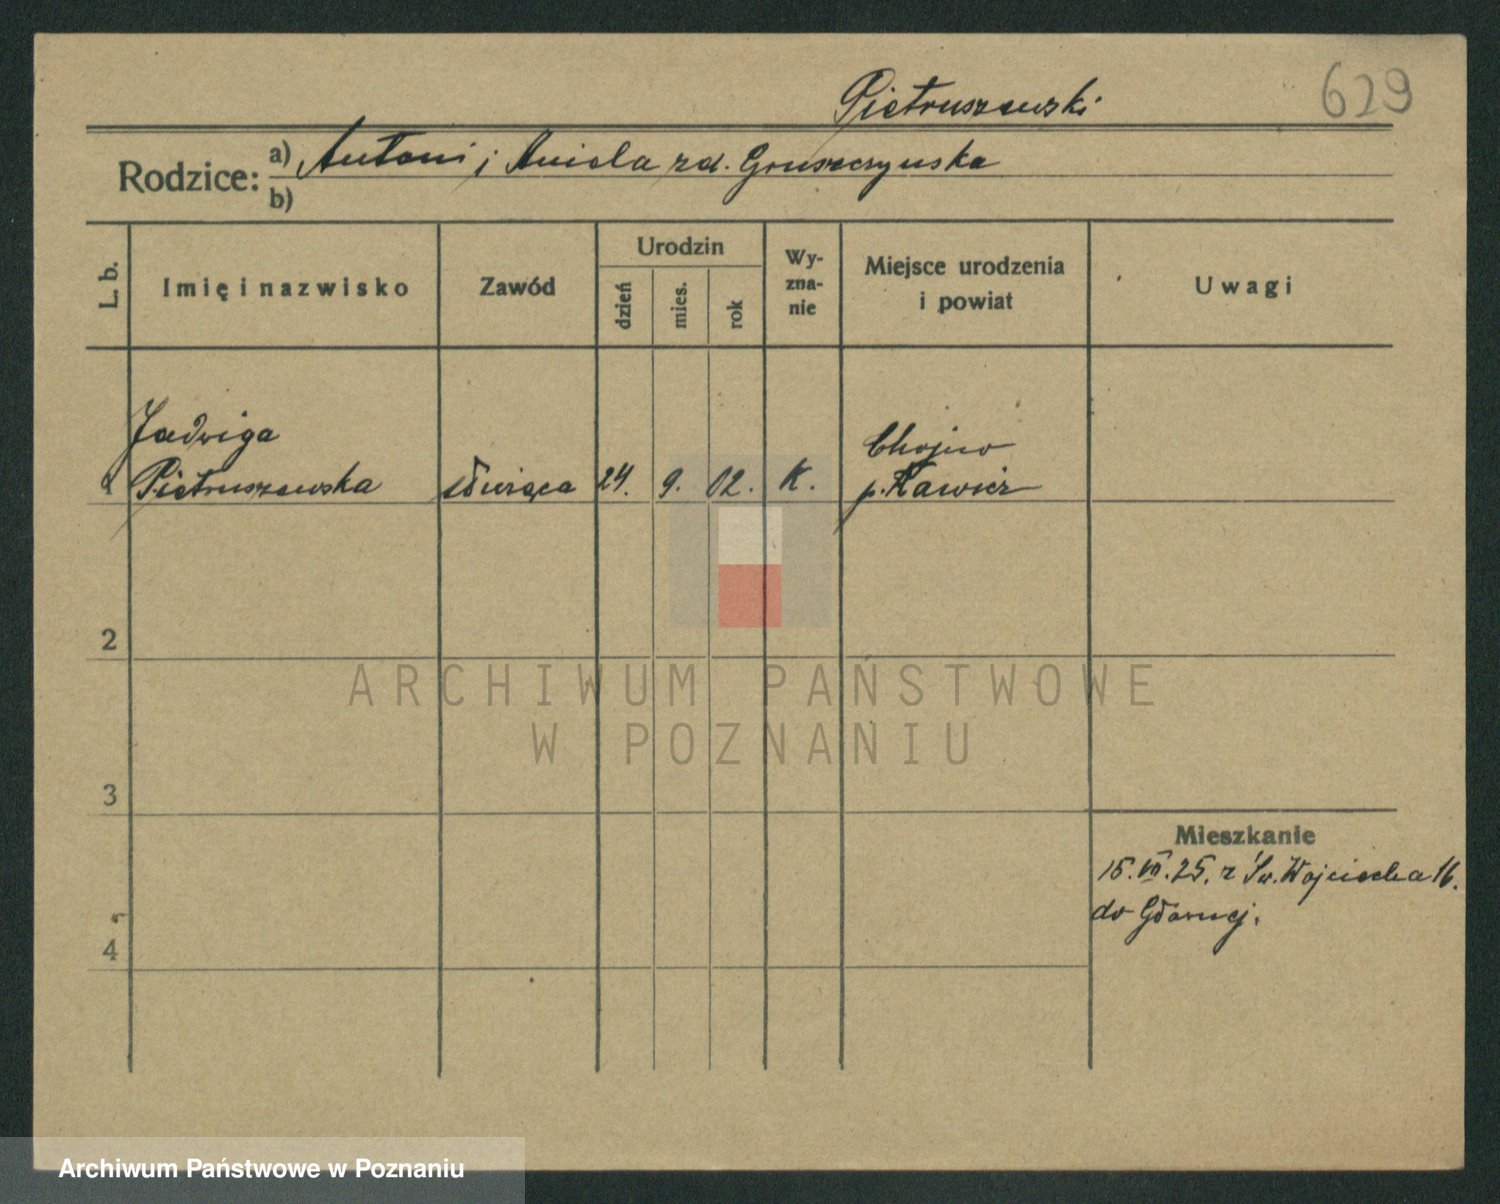 629
Pietruszewski
Rodzice: a) Antoni i Aniela zd. Gruszczynska
b)
L. b.
Imię i nazwisko
Zawód
Urodzin
dzień
mies.
rok
Wy-
zna-
nie
Miejsce urodzenia
i powiat
Uwagi
1 Jadwiga
Pietruszewska służąca 24. 9. 02. K. Chojno
p. Rawicz
2
3
4
Mieszkanie
15.VII.25. z Św. Wojciecha 16.
do
ARCHIWUM PAŃSTWOWE
W POZNANIU
Archiwum Państwowe w Poznaniu